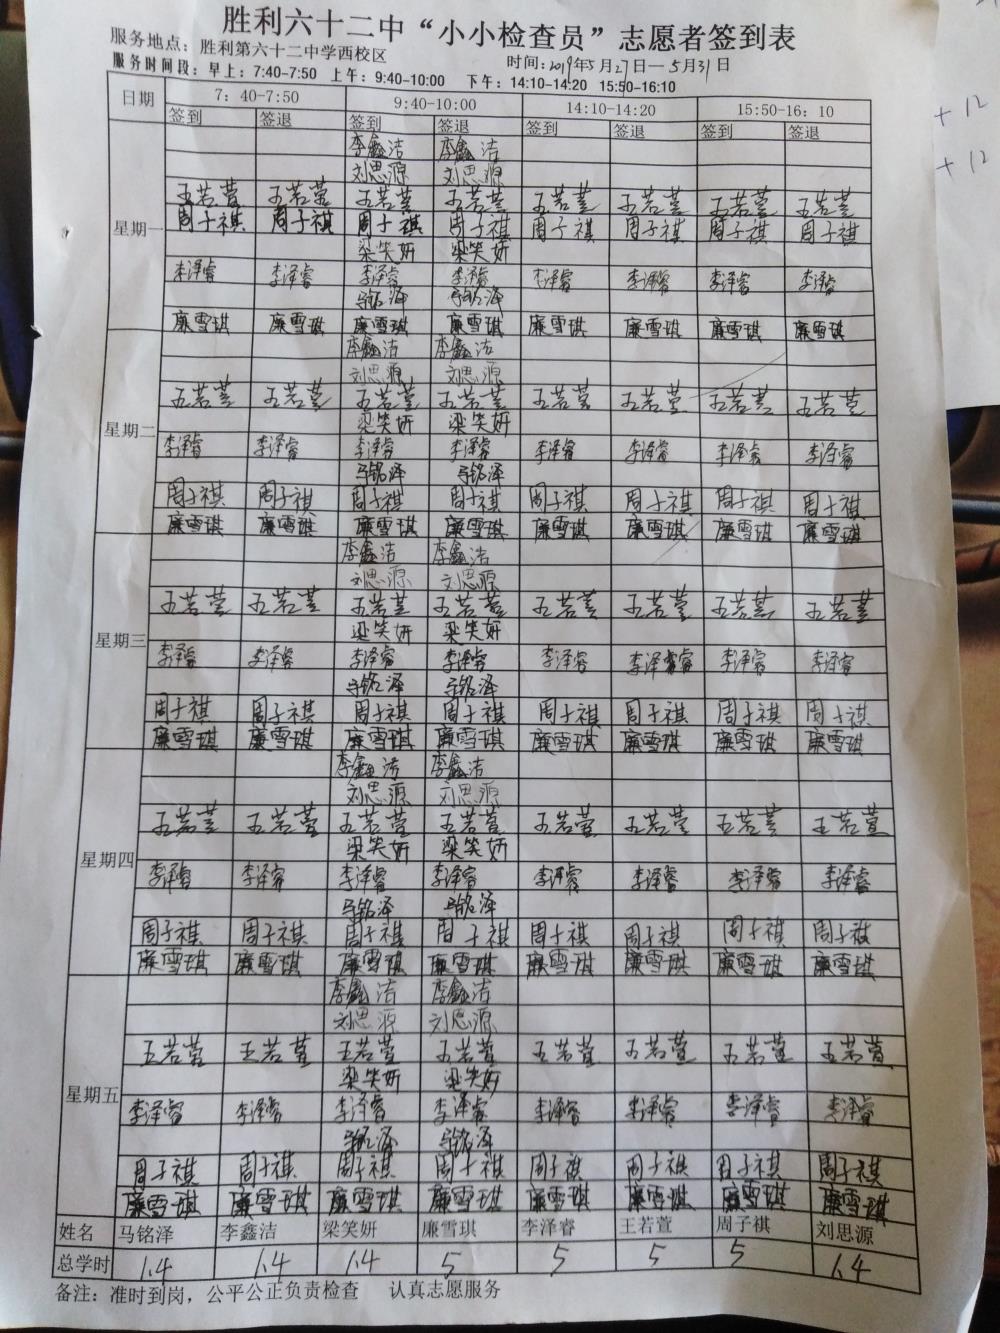 胜利六十二中“小小检查员”志愿者签到表
服务地点：胜利第六十二中学西校区
时间：2019年5月27日—5月31日
服务时间段：早上：7:40-7:50 上午：9:40-10:00 下午：14:10-14:20 15:50-16:10
+12
+12
日期 7：40-7:50 9:40-10:00 14:10-14:20 15:50-16：10
签到 签退 签到 签退 签到 签退 签到 签退
星期一
李鑫洁 李鑫洁
刘思源 刘思源
王若萱 王若萱 王若萱 王若萱 王若萱 王若萱 王若萱 王若萱
周子祺 周子祺 周子祺 周子祺 周子祺 周子祺 周子祺 周子祺
梁笑妍 梁笑妍
李泽睿 李泽睿 李泽睿 李泽睿 李泽睿 李泽睿 李泽睿 李泽睿
马铭泽 马铭泽
廉雪琪 廉雪琪 廉雪琪 廉雪琪 廉雪琪 廉雪琪 廉雪琪 廉雪琪
星期二
李鑫洁 李鑫洁
刘思源 刘思源
王若萱 王若萱 王若萱 王若萱 王若萱 王若萱 王若萱 王若萱
梁笑妍 梁笑妍
李泽睿 李泽睿 李泽睿 李泽睿 李泽睿 李泽睿 李泽睿 李泽睿
马铭泽 马铭泽
周子祺 周子祺 周子祺 周子祺 周子祺 周子祺 周子祺 周子祺
廉雪琪 廉雪琪 廉雪琪 廉雪琪 廉雪琪 廉雪琪 廉雪琪 廉雪琪
星期三
李鑫洁 李鑫洁
刘思源 刘思源
王若萱 王若萱 王若萱 王若萱 王若萱 王若萱 王若萱 王若萱
梁笑妍 梁笑妍
李泽睿 李泽睿 李泽睿 李泽睿 李泽睿 李泽睿睿 李泽睿 李泽睿
马铭泽 马铭泽
周子祺 周子祺 周子祺 周子祺 周子祺 周子祺 周子祺 周子祺
廉雪琪 廉雪琪 廉雪琪 廉雪琪 廉雪琪 廉雪琪 廉雪琪 廉雪琪
星期四
李鑫洁 李鑫洁
刘思源 刘思源
王若萱 王若萱 王若萱 王若萱 王若萱 王若萱 王若萱 王若萱
梁笑妍 梁笑妍
李泽睿 李泽睿 李泽睿 李泽睿 李泽睿 李泽睿 李泽睿 李泽睿
马铭泽 马铭泽
周子祺 周子祺 周子祺 周子祺 周子祺 周子祺 周子祺 周子祺
廉雪琪 廉雪琪 廉雪琪 廉雪琪 廉雪琪 廉雪琪 廉雪琪 廉雪琪
星期五
李鑫洁 李鑫洁
刘思源 刘思源
王若萱 王若萱 王若萱 王若萱 王若萱 王若萱 王若萱 王若萱
梁笑妍 梁笑妍
李泽睿 李泽睿 李泽睿 李泽睿 李泽睿 李泽睿 李泽睿 李泽睿
马铭泽 马铭泽
周子祺 周子祺 周子祺 周子祺 周子祺 周子祺 周子祺 周子祺
廉雪琪 廉雪琪 廉雪琪 廉雪琪 廉雪琪 廉雪琪 廉雪琪 廉雪琪
姓名 马铭泽 李鑫洁 梁笑妍 廉雪琪 李泽睿 王若萱 周子祺 刘思源
总学时 1.4 1.4 1.4 5 5 5 5 1.4
备注：准时到岗，公平公正负责检查 认真志愿服务